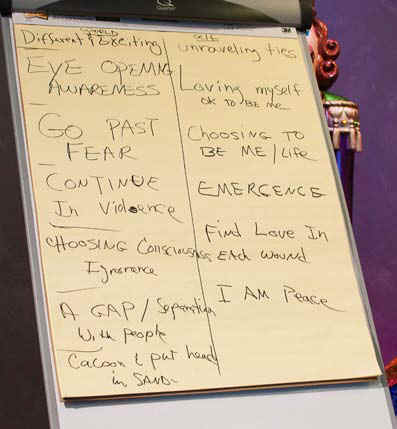 Quartet
3M
WORLD
Different & Exciting
EYE OPENING
AWARENESS
GO PAST
FEAR
CONTINUE
In Violence
CHOOSING Consciousness
Ignorance
A GAP / Separation
With people
Cacoon & put head
in SAND
SELF
unraveling ties
Loving myself
OK TO BE me
CHOOSING TO
BE ME / Life
EMERGENCE
Find Love In
EACH Wound
I AM Peace